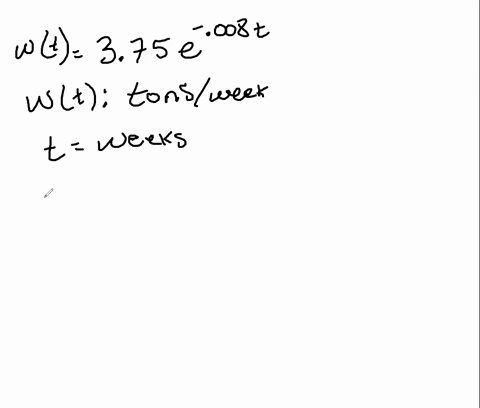 w(t)= 3.75 e^-.008t
w(t): tons/week
t = weeks